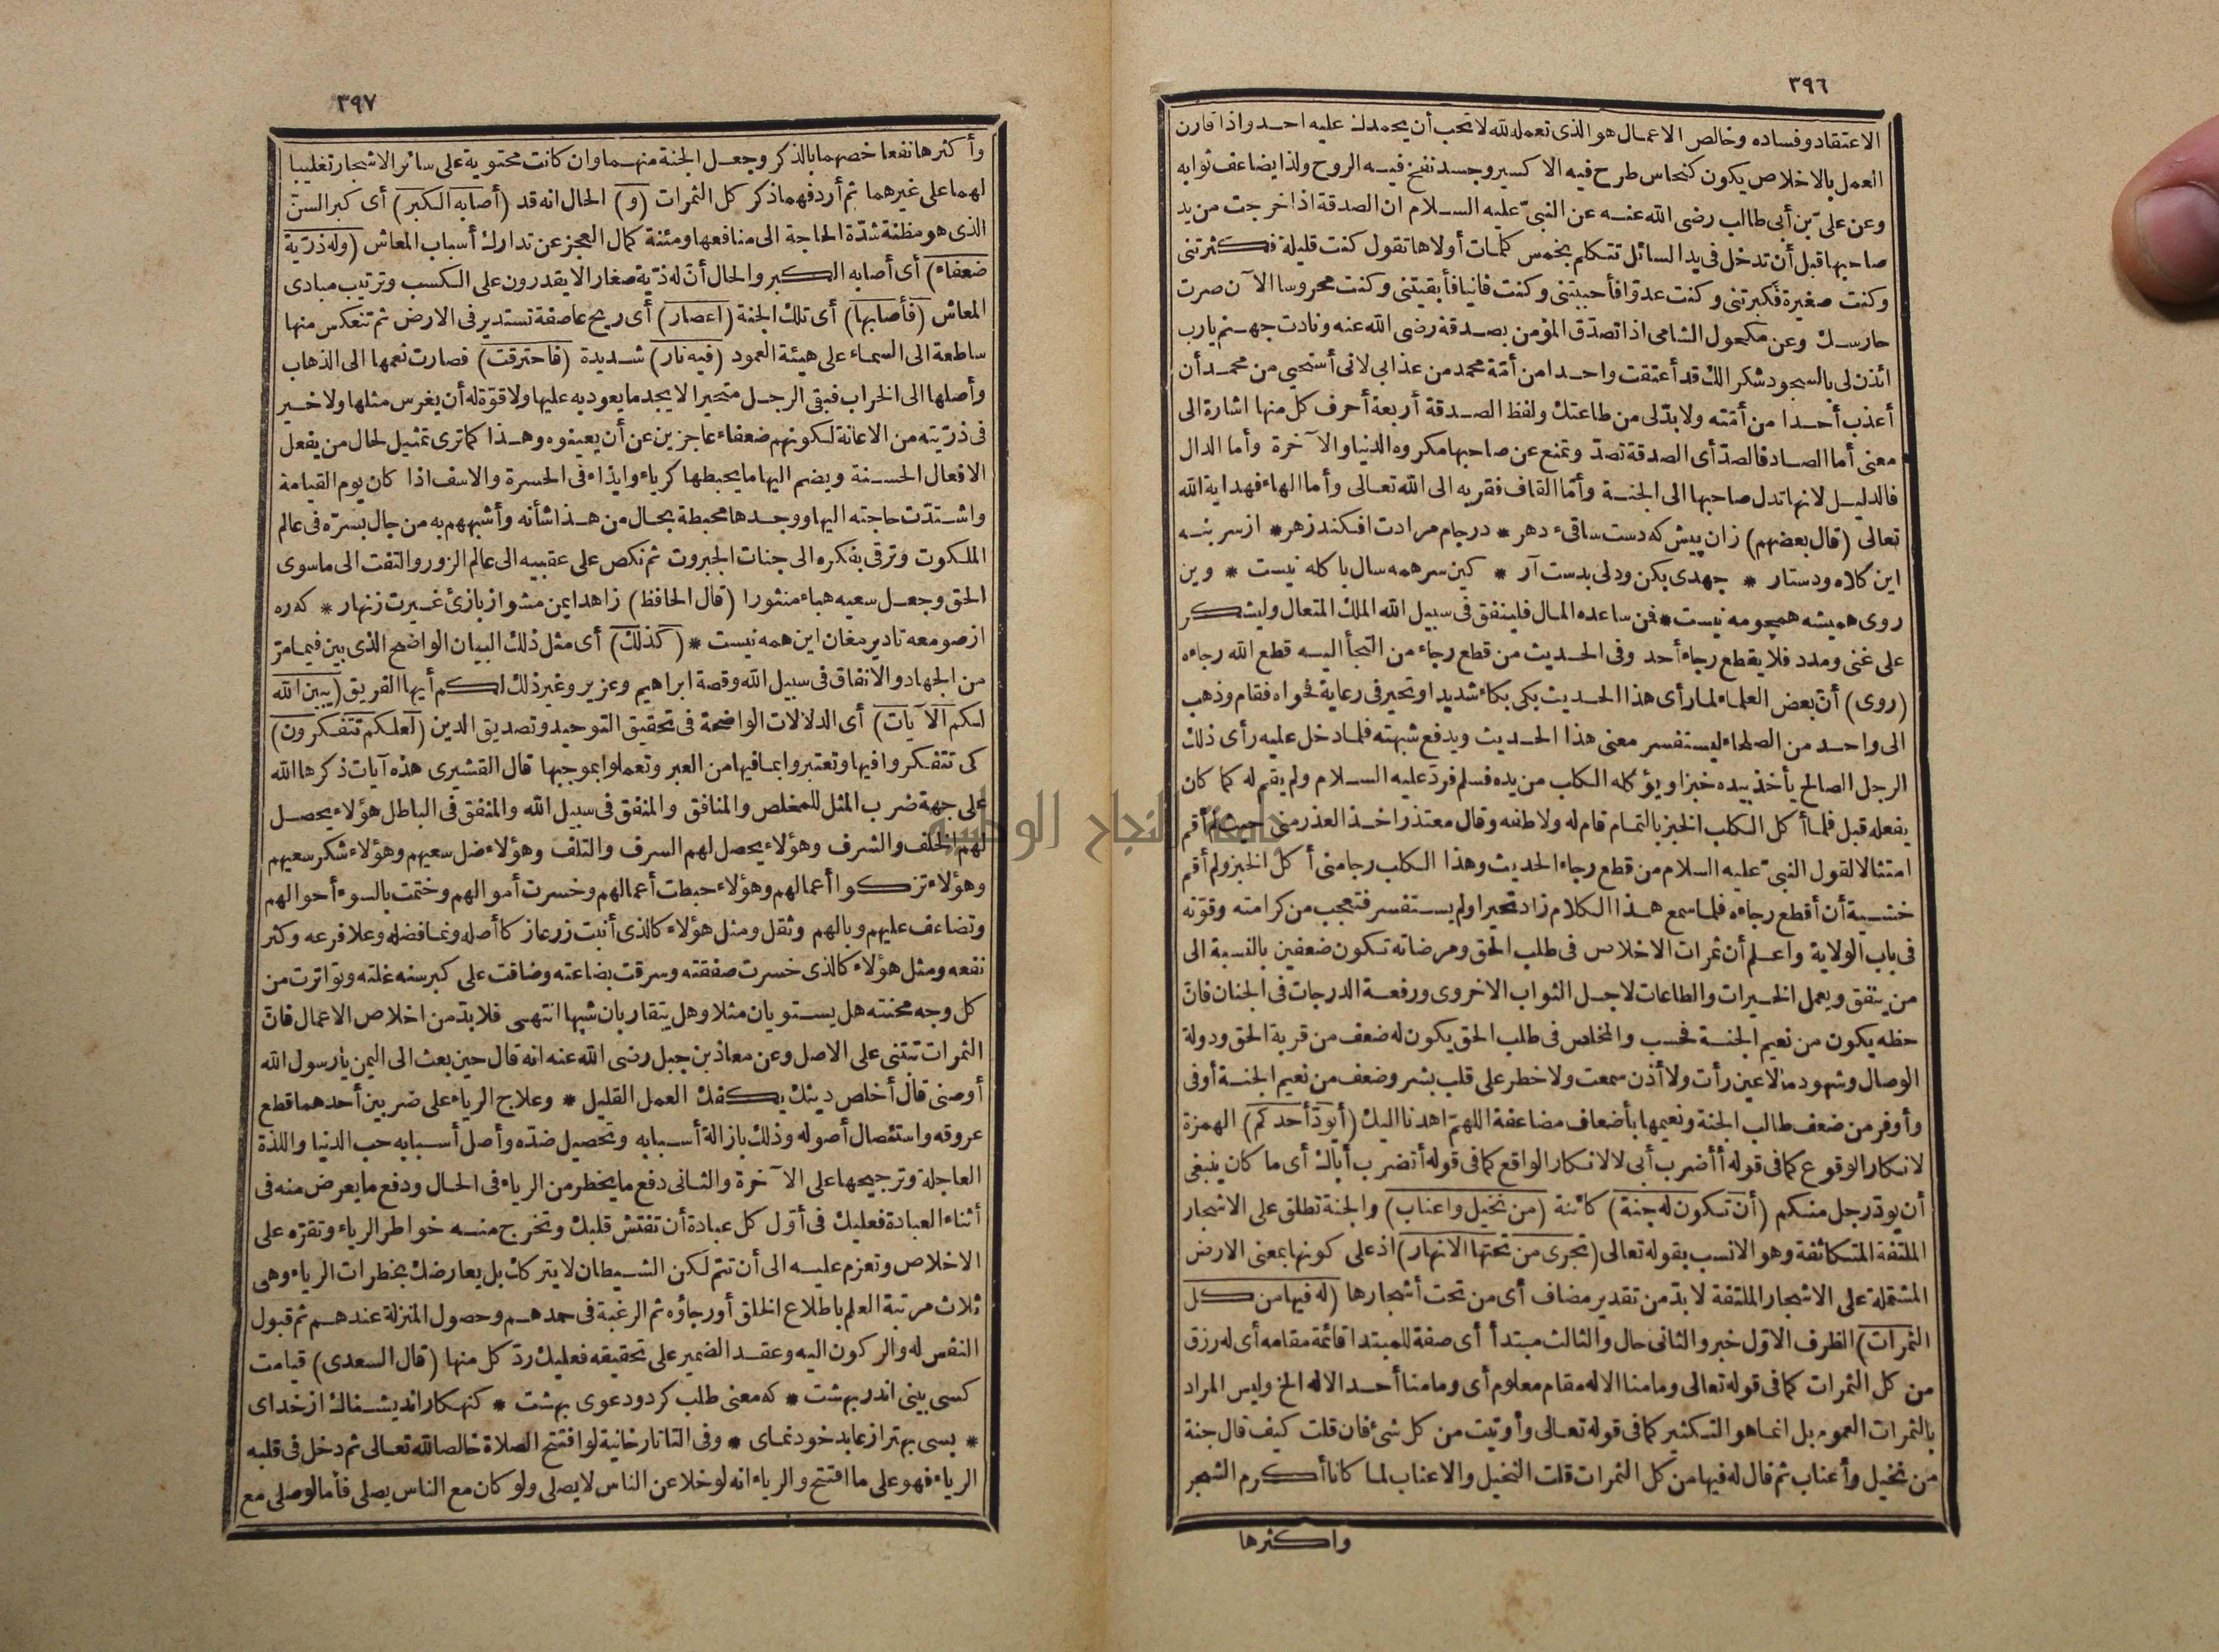 ٣٩٦
الاعتقاد وفساده وخالص الاعمال هو الذى تعمله لله لا تحب أن يحمدك عليه احد واذا قارن
العمل بالاخلاص يكون كنحاس طرح فيه الاكسير وجسد نفخ فيه الروح ولذا يضاعف ثوابه
وعن علىّ بن أبى طالب رضى الله عنه عن النبىّ عليه السلام ان الصدقة اذا خرجت من يد
صاحبها قبل أن تدخل فى يد السائل تتكلم بخمس كلمات أولاها تقول كنت قليلة فكثرتنى
وكنت صغيرة فكبرتنى وكنت عدوّا فأحببتنى وكنت فانيا فأبقيتنى وكنت محروسا الآن صرت
حارسك وعن مكحول الشامى اذا تصدّق المؤمن بصدقة رضى الله عنه ونادت جهنم يا رب
ائذن لى بالسجود شكرا لك قد أعتقت واحدا من أمّة محمد من عذابى لانى أستحيى من محمد أن
أعذب أحدا من أمّته ولا بدّ لى من طاعتك ولفظ الصدقة أربعة أحرف كل منها اشارة الى
معنى أما الصاد فالصدّ أى الصدقة تصدّ وتمنع عن صاحبها مكروه الدنيا والآخرة وأما الدال
فالدليل لانها تدل صاحبها الى الجنة وأمّا القاف فقربه الى الله تعالى وأما الهاء فهداية الله
تعالى (قال بعضهم) زان پيش كه دست ساقىء دهر * در جام مرادت افكند زهر * از سر بنه
اين كلاه ودستار * جهدى بكن ودلى بدست آر * كين سر همه سال با كله نيست * وين
روى هميشه همچو مه نيست * فمن ساعده المال فلينفق فى سبيل الله الملك المتعال وليشكر
على غنى ومدد فلا يقطع رجاء أحد وفى الحديث من قطع رجاء من التجأ اليه قطع الله رجاءه
(روى) أنّ بعض العلماء لما رأى هذا الحديث بكى بكاء شديدا وتحير فى رعاية فحواه فقام وذهب
الى واحد من الصلحاء ليستفسر معنى هذا الحديث ويدفع شبهته فلما دخل عليه رأى ذلك
الرجل الصالح يأخذ بيده خبزا ويؤكله الكلب من يده فسلم فردّ عليه السلام ولم يقم له كما كان
يفعله قبل فلما أكل الكلب الخبز بالتمام قام له ولاطفه وقال معتذرا خذ العذر منى حيث لم أقم
امتثالا لقول النبىّ عليه السلام من قطع رجاء الحديث وهذا الكلب رجا منى أكل الخبز ولم أقم
خشية أن أقطع رجاءه فلما سمع هذا الكلام زاد تحيرا ولم يستفسر فتعجب من كرامته وقوّته
فى باب الولاية واعلم أن ثمرات الاخلاص فى طلب الحق ومرضاته تكون ضعفين بالنسبة الى
من ينفق ويعمل الخيرات والطاعات لاجل الثواب الاخروى ورفعة الدرجات فى الجنان فانّ
حظه يكون من نعيم الجنة فحسب والمخلص فى طلب الحق يكون له ضعف من قربة الحق ودولة
الوصال وشهود ما لا عين رأت ولا أذن سمعت ولا خطر على قلب بشر وضعف من نعيم الجنة أوفى
وأوفر من ضعف طالب الجنة ونعيمها بأضعاف مضاعفة اللهمّ اهدنا اليك (أيودّ أحدكم) الهمزة
لانكار الوقوع كما فى قوله أأضرب أبى لا لانكار الواقع كما فى قوله أتضرب أباك أى ما كان ينبغى
أن يودّ رجل منكم (أن تكون له جنة) كائنة (من نخيل واعناب) والجنة تطلق على الاشجار
الملتفة المتكاثفة وهو الانسب بقوله تعالى (تجرى من تحتها الانهار) اذ على كونها بمعنى الارض
المشتملة على الاشجار الملتفة لا بدّ من تقدير مضاف أى من تحت أشجارها (له فيها من كل
الثمرات) الظرف الاوّل خبر والثانى حال والثالث مبتدأ أى صفة للمبتدا قائمة مقامه أى له رزق
من كل الثمرات كما فى قوله تعالى وما منا الا له مقام معلوم أى وما منا أحد الا له الخ وليس المراد
بالثمرات العموم بل انما هو التكثير كما فى قوله تعالى وأوتيت من كل شئ فان قلت كيف قال جنة
من نخيل وأعناب ثم قال له فيها من كل الثمرات قلت النخيل والاعناب لما كانا أكرم الشجر
واكثرها
٣٩٧
وأكثرها نفعا خصهما بالذكر وجعل الجنة منهما وان كانت محتوية على سائر الاشجار تغليبا
لهما على غيرهما ثم أردفهما ذكر كل الثمرات (و) الحال انه قد (أصابه الكبر) أى كبر السنّ
الذى هو مظنة شدّة الحاجة الى منافعها ومئنة كمال العجز عن تدارك أسباب المعاش (وله ذرّية
ضعفاء) أى أصابه الكبر والحال أنّ له ذرّية صغارا لا يقدرون على الكسب وترتيب مبادى
المعاش (فأصابها) أى تلك الجنة (اعصار) أى ريح عاصفة تستدير فى الارض ثم تنعكس منها
ساطعة الى السماء على هيئة العمود (فيه نار) شديدة (فاحترقت) فصارت نعمها الى الذهاب
وأصلها الى الخراب فبقى الرجل متحيرا لا يجد ما يعود به عليها ولا قوّة له أن يغرس مثلها ولا خير
فى ذرّيته من الاعانة لكونهم ضعفاء عاجزين عن أن يعينوه وهذا كما ترى تمثيل لحال من يفعل
الافعال الحسنة ويضم اليها ما يحبطها كرياء وايذاء فى الحسرة والاسف اذا كان يوم القيامة
واشتدّت حاجته اليها ووجدها محبطة بحال من هذا شأنه وأشبههم به من جال بسرّه فى عالم
الملكوت وترقى بفكره الى جنات الجبروت ثم نكص على عقبيه الى عالم الزور والتفت الى ماسوى
الحق وجعل سعيه هباء منثورا (قال الحافظ) زاهد ايمن مشو از بازئ غيرت زنهار * كه ره
از صومعه تا دير مغان اين همه نيست * (كذلك) أى مثل ذلك البيان الواضح الذى بين فيما مرّ
من الجهاد والانفاق فى سبيل الله وقصة ابراهيم وعزير وغير ذلك لكم أيها الفريق (يبين الله
لكم الآيات) أى الدلالات الواضحة فى تحقيق التوحيد وتصديق الدين (لعلكم تتفكرون)
كى تتفكروا فيها وتعتبروا بما فيها من العبر وتعملوا بموجبها قال القشيرى هذه آيات ذكرها الله
على جهة ضرب المثل للمخلص والمنافق والمنفق فى سبيل الله والمنفق فى الباطل هؤلاء يحصل
لهم الخلف والشرف وهؤلاء يحصل لهم السرف والتلف وهؤلاء ضل سعيهم وهؤلاء شكر سعيهم
وهؤلاء تزكوا أعمالهم وهؤلاء حبطت أعمالهم وخسرت أموالهم وختمت بالسوء أحوالهم
وتضاعف عليهم وبالهم وثقل ومثل هؤلاء كالذى أنبت زرعا زكا أصله ونما فضله وعلا فرعه وكثر
نفعه ومثل هؤلاء كالذى خسرت صفقته وسرقت بضاعته وضاقت على كبر سنه غلته وتواترت من
كل وجه محنته هل يستويان مثلا وهل يتقاربان شبها انتهى فلا بدّ من اخلاص الاعمال فانّ
الثمرات تبتنى على الاصل وعن معاذ بن جبل رضى الله عنه انه قال حين بعث الى اليمن يا رسول الله
أوصنى قال أخلص دينك يكفك العمل القليل * وعلاج الرياء على ضربين أحدهما قطع
عروقه واستئصال أصوله وذلك بازالة أسبابه وتحصيل ضدّه وأصل أسبابه حب الدنيا واللذة
العاجلة وترجيحها على الآخرة والثانى دفع ما يخطر من الرياء فى الحال ودفع ما يعرض منه فى
أثناء العبادة فعليك فى أوّل كل عبادة أن تفتش قلبك وتخرج منه خواطر الرياء وتقرّه على
الاخلاص وتعزم عليه الى أن تتم لكن الشيطان لا يتركك بل يعارضك بخطرات الرياء وهى
ثلاث مرتبة العلم باطلاع الخلق أو رجاؤه ثم الرغبة فى حمدهم وحصول المنزلة عندهم ثم قبول
النفس له والركون اليه وعقد الضمير على تحقيقه فعليك ردّ كل منها (قال السعدى) قيامت
كسى بينى اندر بهشت * كه معنى طلب كرد ودعوى بهشت * كنهكار انديشناك از خداى
* بسى بهتر از عابد خود نماى * وفى التاتارخانية لو افتتح الصلاة خالصا لله تعالى ثم دخل فى قلبه
الرياء فهو على ما افتتح والرياء انه لو خلا عن الناس لا يصلى ولو كان مع الناس يصلى فأما لو صلى مع
جامعة النجاح الوطنية